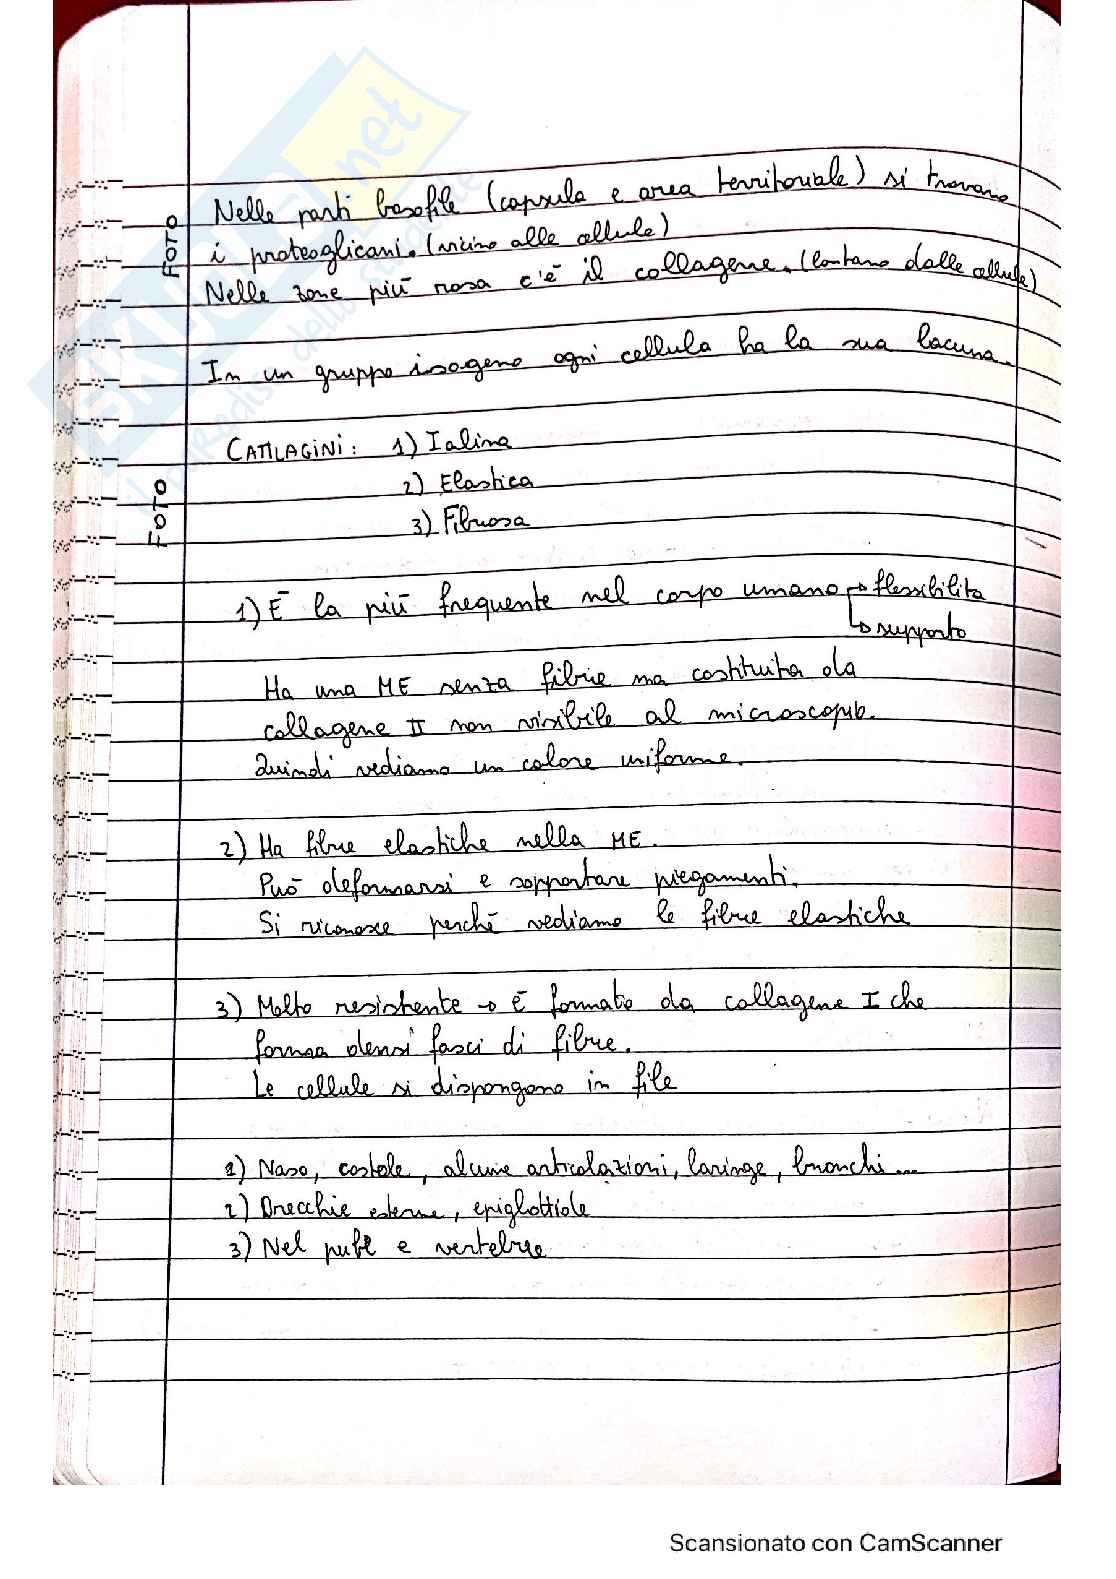 FOTO
Nelle parti basofile (capsula e area territoriale) si trovano
i proteoglicani. (vicino alle cellule)
Nelle zone più rosa c'è il collagene. (lontano dalle cellule)
In un gruppo isogeno ogni cellula ha la sua lacuna.
FOTO
CATILAGINI: 1) Ialina
2) Elastica
3) Fibrosa
1) È la più frequente nel corpo umano → flessibilità
↳ supporto
Ha una ME senza fibre ma costituita da
collagene II non visibile al microscopio.
Quindi vediamo un colore uniforme.
2) Ha fibre elastiche nella ME.
Può deformarsi e sopportare piegamenti.
Si riconosce perché vediamo le fibre elastiche
3) Molto resistente → è formato da collagene I che
forma densi fasci di fibre.
Le cellule si dispongono in file
1) Naso, costole, alcune articolazioni, laringe, bronchi...
2) Orecchie esterne, epiglottide
3) Nel pube e vertebre
SKUOLA.net
il paradiso dello studente
Scansionato con CamScanner